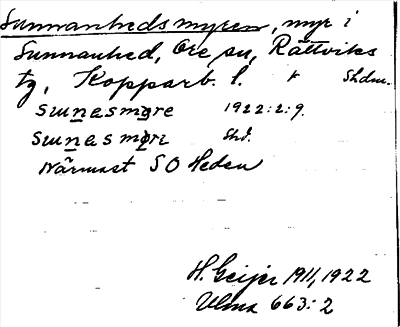 Sunnanhedsmyren, myr i
Sunnanhed, Ore sn, Rättviks
tg, Kopparb. l. Shdm.
sunesmyre 1922:2:9.
sunesmyri Shd.
Närmast S O Heden
H. Geijer 1911, 1922
Ulma 663:2